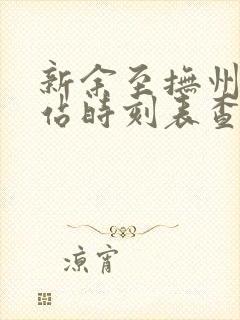 新余至撫州
佔時刻表查
凉宵